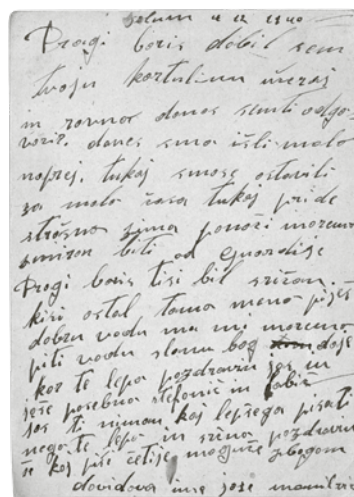 4 12 1940
Dragi boris dobil sem
tvoju kartulinu učeraj
in ravnos danas semti odgo
voriš. danes smo išli malo
naprej. tukaj smose ostavili
za malo časa tukaj pride
strašna zima ponoči moremo
biti od
Dragi boris tisi bil srečan
kisi ostal tamo meno piješ
dobru vodu ma mi moremo
piti vodu slanu bog daje
kor te lepo pozdravu jos in
još posebno štefančič in
jos ti nimam kaj lepšega pisati
nego te lepo in srčno pozdravu
še kaj piši če ti je moguče zbogom